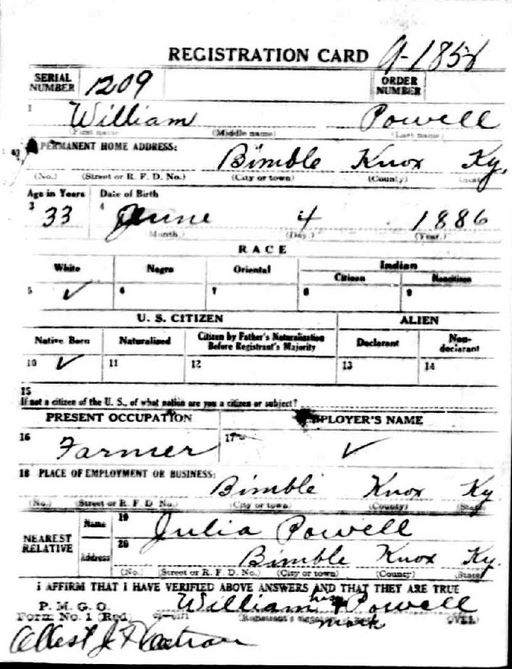 REGISTRATION CARD
SERIAL NUMBER 1209 ORDER NUMBER
1 William Powell
(First name) (Middle name) (Last name)
PERMANENT HOME ADDRESS:
Bimble Knox Ky.
(No.) (Street or R. F. D. No.) (City or town) (County) (State)
Age in Years Date of Birth
3 33 4 June 4 1886
(Month.) (Day.) (Year.)
RACE
White Negro Oriental Indian
Citizen Noncitizen
5 ✓ 6 7 8 9
U. S. CITIZEN ALIEN
Native Born Naturalized Citizen by Father's Naturalization Before Registrant's Majority Declarant Non-declarant
10 ✓ 11 12 13 14
15
If not a citizen of the U. S., of what nation are you a citizen or subject?
PRESENT OCCUPATION EMPLOYER'S NAME
16 Farmer 17 ✓
18 PLACE OF EMPLOYMENT OR BUSINESS:
Bimble Knox Ky
(No.) (Street or R. F. D. No.) (City or town) (County) (State)
NEAREST RELATIVE
Name 19 Julia Powell
Address 20 Bimble Knox Ky.
(No.) (Street or R. F. D. No.) (City or town) (County) (State)
I AFFIRM THAT I HAVE VERIFIED ABOVE ANSWERS AND THAT THEY ARE TRUE
P. M. G. O.
Form No. 1 (Red) William his Powell
mark (OVER)
Attest J.